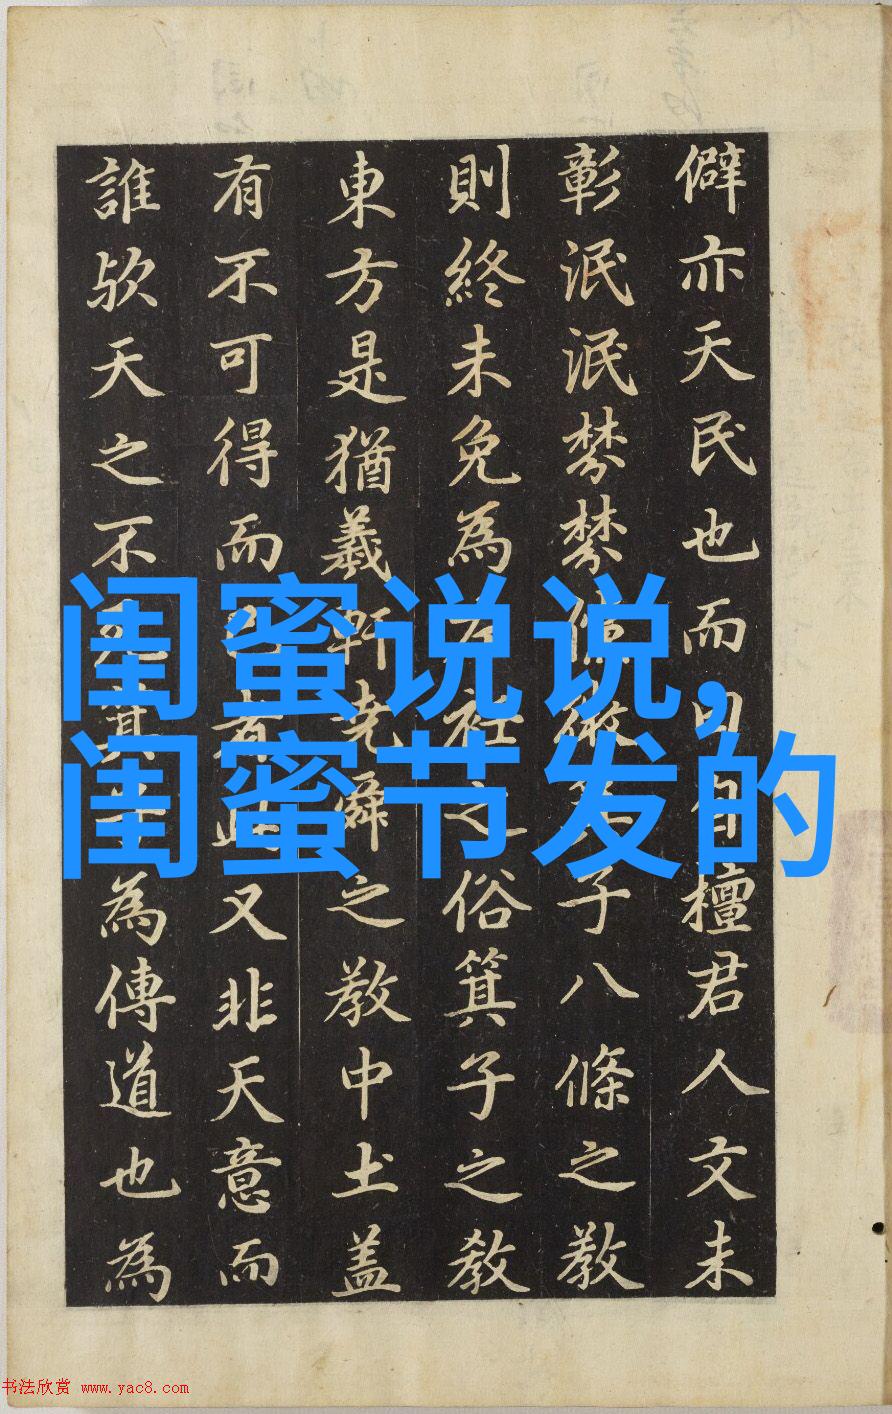 僻亦天民也而曰自檀君人文未
彰泯泯棼棼子八條之教
則終未免為左衽之俗箕子之教
東方是猶羲軒堯舜之教中土盖
有不可得而者此又非天意而
誰歟天之不死箕子為傳道也為
闺蜜说说,
闺蜜节发的
书法欣赏 www.yac8.com